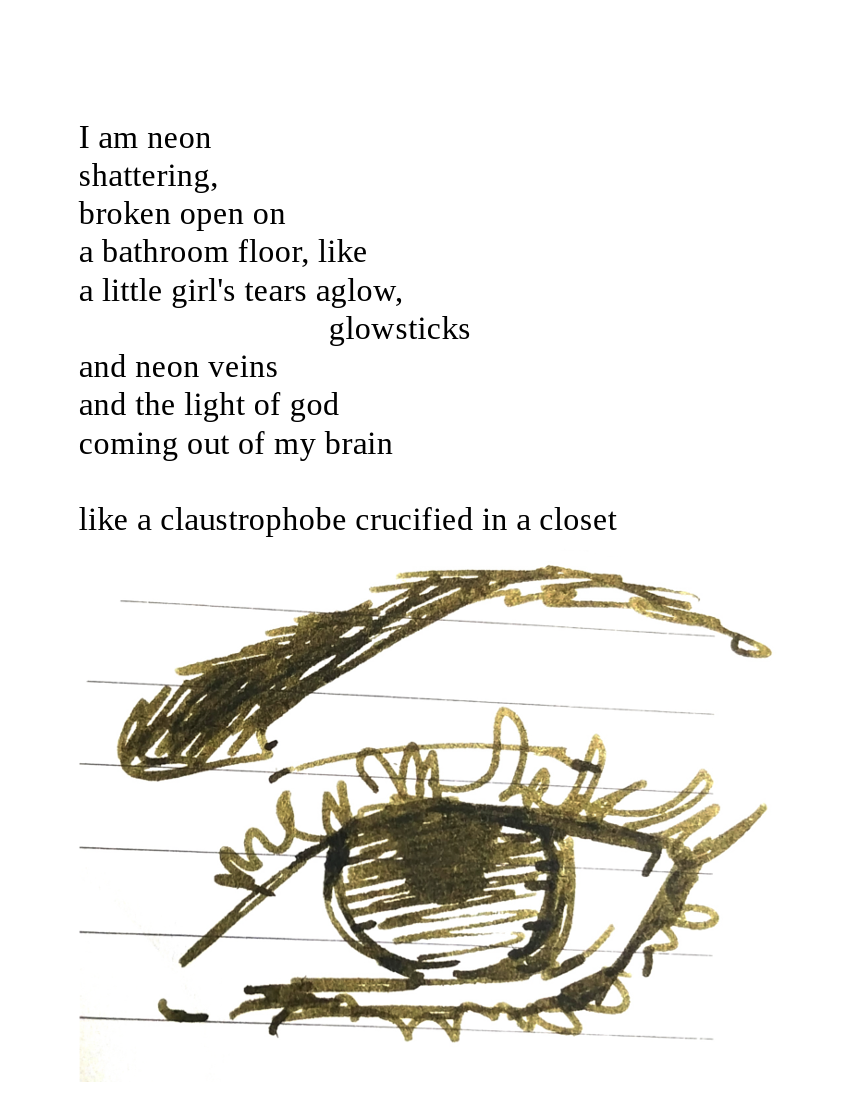 I am neon
shattering,
broken open on
a bathroom floor, like
a little girl's tears aglow,
glowsticks
and neon veins
and the light of god
coming out of my brain
like a claustrophobe crucified in a closet